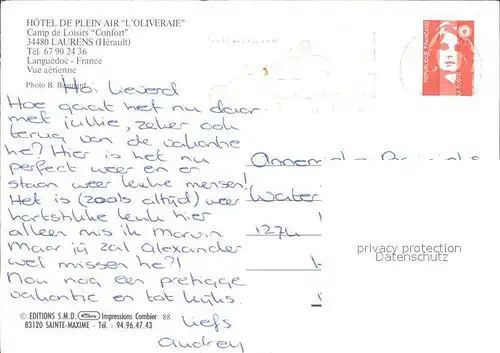 HÔTEL DE PLEIN AIR "L'OLIVERAIE"
Camp de Loisirs "Confort"
34480 LAURENS (Hérault)
Tél. 67 90 24 36
Languedoc - France
Vue aérienne
Photo B.
RÉPUBLIQUE FRANÇAISE
LA POSTE
Hoi lieverd
Hoe gaat het nu daar
met jullie, zeker ook
terug van de vakantie
he? Hier is het nu
perfect weer en er
staan weer leuke mensen!
Het is (zoals altijd) weer
hartstikke leuk hier
alleen mis ik Marvin
Maar jij zal Alexander
wel missen he?!
Nou nog een prettige
vakantie en tot kijks.
liefs
Audrey
Water
1274
privacy protection
Datenschutz
© EDITIONS S.M.D. Impressions Combier 88
83120 SAINTE-MAXIME - Tél. : 94.96.47.43